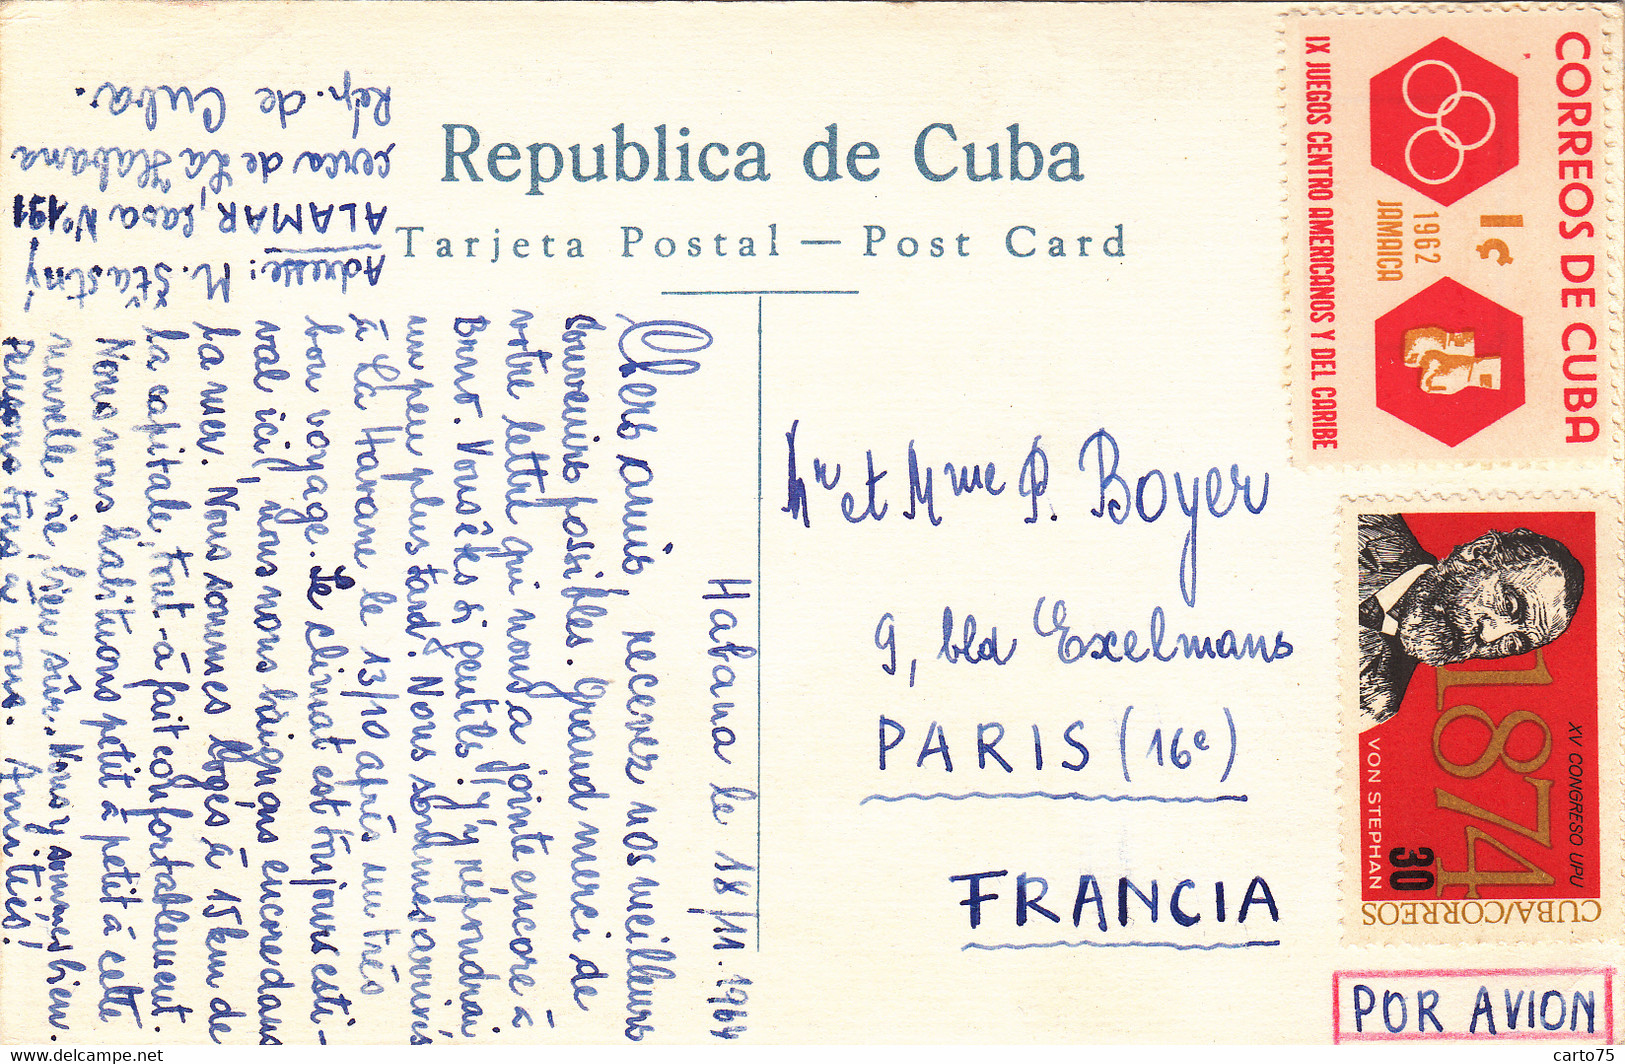 Republica de Cuba
Tarjeta Postal — Post Card
Habana le 18/11.1964
Chers amis, recevez nos meilleurs
souvenirs possibles. Grand merci de
votre lettre qui nous a jointe encore à
Brno. Vous êtes si gentils! J'y répondrai
un peu plus tard. Nous sommes arrivés
à La Havane le 13/10 après un très
bon voyage. Le climat est toujours esti-
val ici, nous nous baignons encore dans
la mer. Nous sommes logés à 15 km de
la capitale, tout-à-fait confortablement.
Nous nous habituons petit à petit à cette
nouvelle vie, bien sûr. Nous y sommes bien.
Pensons tous à vous. Amitiés!
Adresse: M. Šťastný
ALAMAR, casa Nº 191
cerca de La Habana
Rép. de Cuba.
Mr et Mme P. Boyer
9, bld Exelmans
PARIS (16e)
FRANCIA
CORREOS DE CUBA
1¢
1962
JAMAICA
IX JUEGOS CENTRO AMERICANOS Y DEL CARIBE
XV CONGRESO UPU
1874
30
VON STEPHAN
CUBA/CORREOS
POR AVION
delcampe.net
carto75